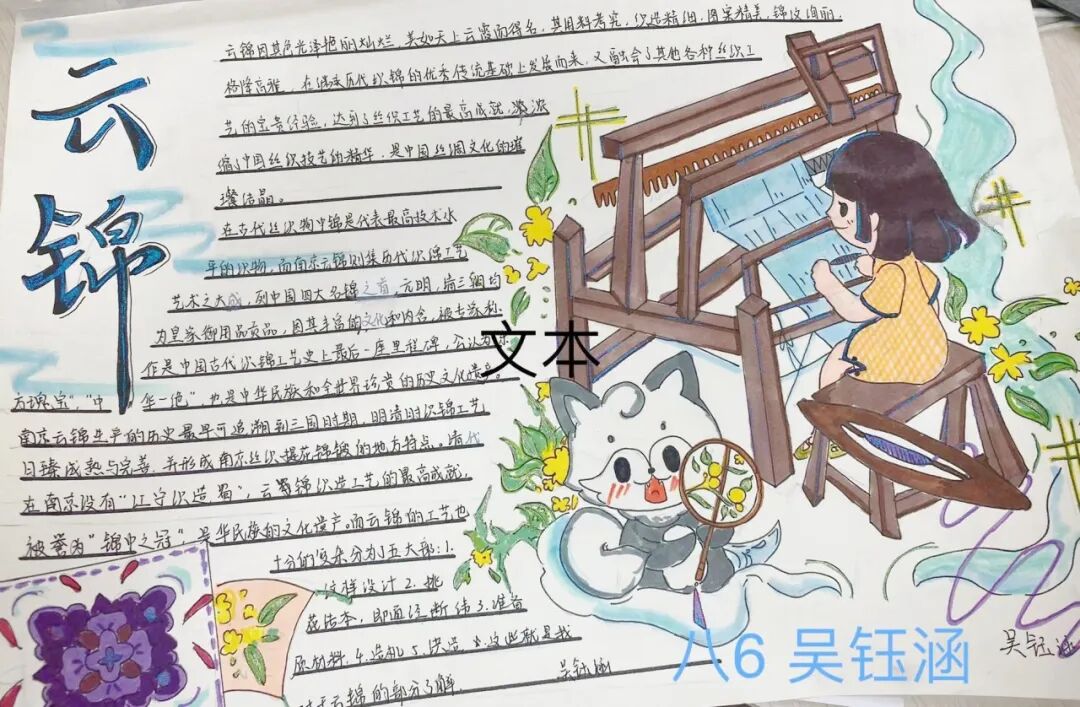 云锦
云锦因其色光泽艳丽灿烂，美如天上云霞而得名，其用料考究，织造精细，图案精美，锦纹绚丽，
格泽高雅，在继承历代织锦的优秀传统基础上发展而来，又融会了其他各种丝织工
艺的宝贵经验，达到了丝织工艺的最高成就，浓
缩了中国丝织技艺的精华，是中国丝绸文化的璀
璨结晶。
在古代丝织物中锦是代表最高技术水
平的织物，而南京云锦则集历代织锦工艺
艺术之大成，列中国四大名锦之首，元，明，清三朝均
为皇家御用品贡品，因其丰富的文化和内含，被专家称
作是中国古代织锦工艺史上最后一座里程碑，公认为
方瑰宝"，"中华一绝"也是中华民族和全世界珍贵的历史文化遗产。
南京云锦生产的历史最早可追溯到三国时期，明清时织锦工艺
日臻成熟与完善，并形成南京丝织提花锦缎的地方特点。清代
在南京设有"江宁织造署"，云锦织造工艺的最高成就，
被誉为"锦中之冠"，是华民族的文化遗产。而云锦的工艺也
十分的复杂分为了五大部：1.
纹样设计 2. 挑
花结本，即通经断纬 3. 准备
原材料. 4. 造机 5. 织造。这些就是我
对于云锦的部分了解.
吴钰涵
文本
吴钰涵
八6 吴钰涵